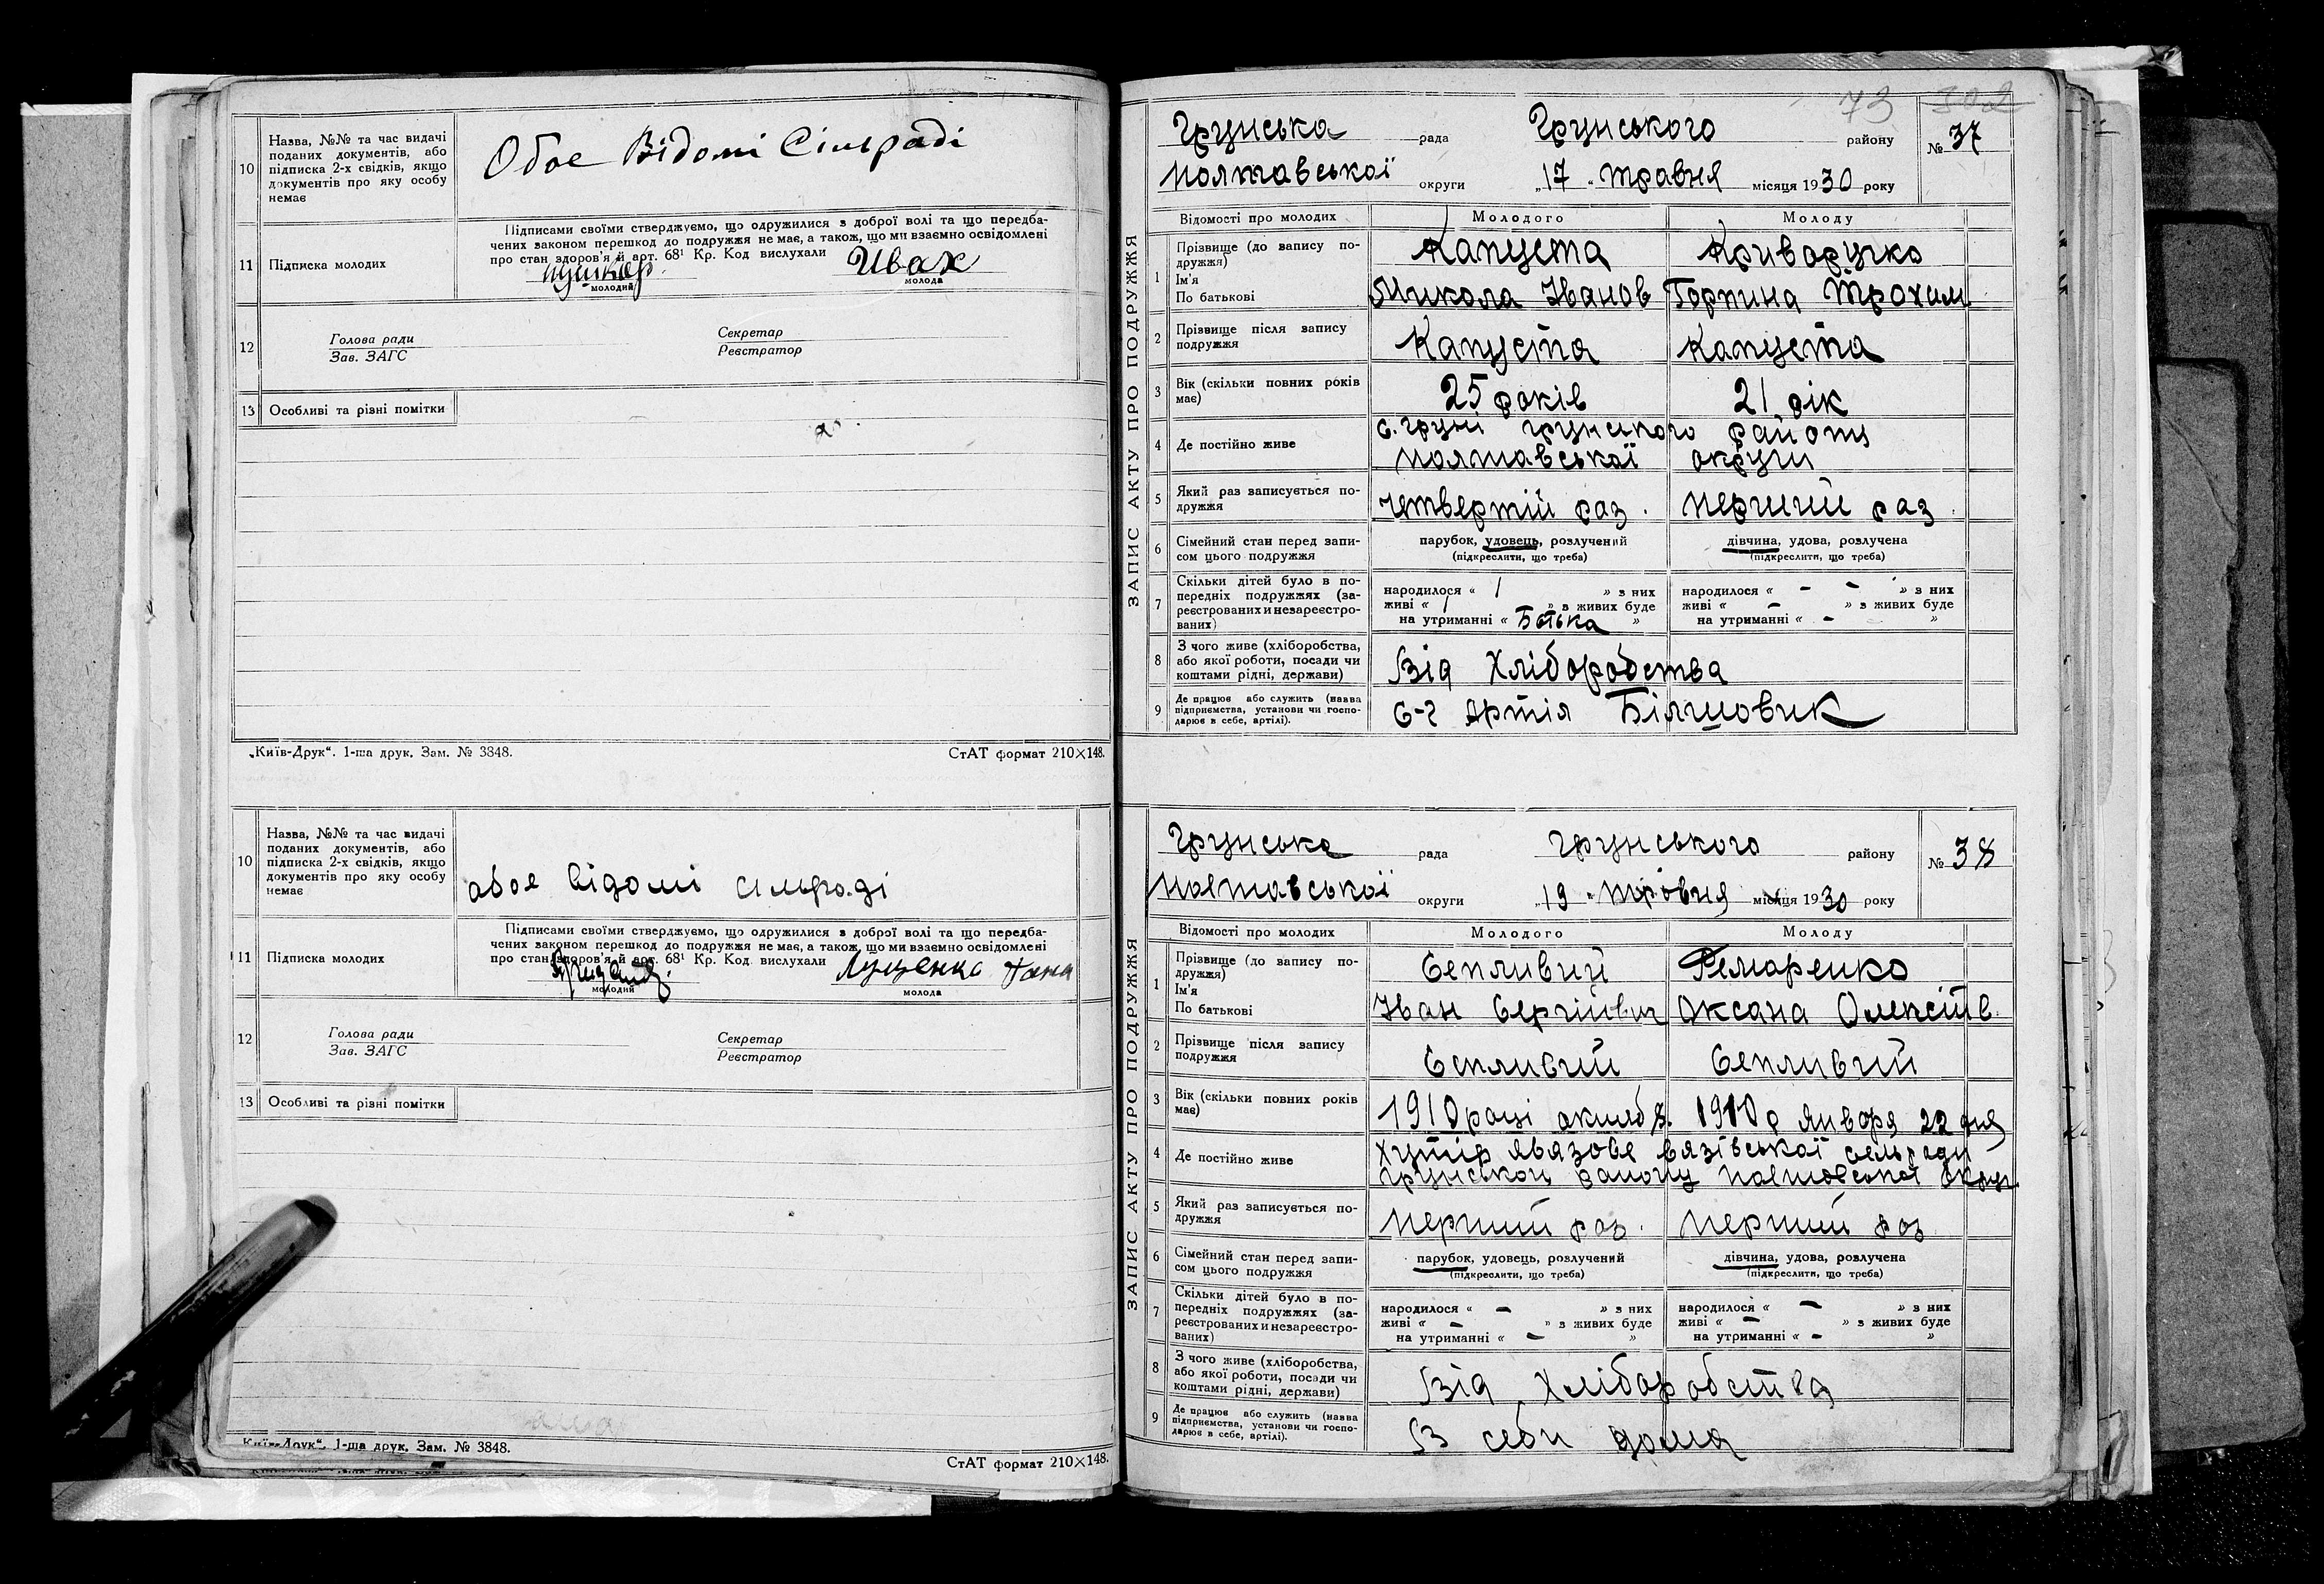 10
Назва, №№ та час видачі
поданих документів, або
підписка 2-х свідків, якщо
документів про яку особу
немає
Обоє Відомі Сільраді
11
Підписка молодих
Підписами своїми стверджуємо, що одружилися з доброї волі та що передба-
чених законом перешкод до подружжя не має, а також, що ми взаємно освідомлені
про стан здоров'я й арт. 68¹ Кр. Код вислухали
Ивах
молодий
молода
12
Голова ради
Зав. ЗАГС
Секретар
Реєстратор
13
Особливі та різні помітки
„Київ-Друк“. 1-ша друк. Зам. № 3848.
СтАТ формат 210×148.
10
Назва, №№ та час видачі
поданих документів, або
підписка 2-х свідків, якщо
документів про яку особу
немає
обоє відомі сільраді
11
Підписка молодих
Підписами своїми стверджуємо, що одружилися з доброї волі та що передба-
чених законом перешкод до подружжя не має, а також, що ми взаємно освідомлені
про стан здоров'я й арт. 68¹ Кр. Код. вислухали
Луценко Гана
молодий
молода
12
Голова ради
Зав. ЗАГС
Секретар
Реєстратор
13
Особливі та різні помітки
Київ-Друк“. 1-ша друк. Зам. № 3848.
СтАТ формат 210×148.
73
302
ЗАПИС АКТУ ПРО ПОДРУЖЖЯ
Грунська рада Грунського району № 37
Полтавської округи „17“ травня місяця 1930 року
Відомості про молодих
Молодого
Молоду
1
Прізвище (до запису по-
дружжя)
Ім'я
По батькові
Капуста
Криворучко
Микола Іванов
Горпина Трохим
2
Прізвище після запису
подружжя
Капуста
Капуста
3
Вік (скільки повних років
має)
25 років
21 рік
4
Де постійно живе
с. Груні Грунського району
Полтавської округи
5
Який раз записується по-
дружжя
четвертій раз.
перший раз.
6
Сімейний стан перед запи-
сом цього подружжя
парубок, удовець, розлучений
(підкреслити, що треба)
дівчина, удова, розлучена
(підкреслити, що треба)
7
Скільки дітей було в по-
передніх подружжях (за-
реєстрованих и незареєстро-
ваних)
народилося « 1 » з них
живі « 1 » з живих буде
на утриманні « Батька »
народилося « – – » з них
живі « – » з живих буде
на утриманні « – »
8
З чого живе (хліборобства,
або якої роботи, посади чи
коштами рідні, держави)
Від Хліборобства
9
Де працює або служить (назва
підприємства, установи чи госпо-
дарює в себе, артілі).
с-г Артія Білшовик
ЗАПИС АКТУ ПРО ПОДРУЖЖЯ
Грунська рада Грунського району № 38
Полтавської округи „19“ травня місяця 1930 року
Відомості про молодих
Молодого
Молоду
1
Прізвище (до запису по-
дружжя)
Ім'я
По батькові
Сепливий
Ремаренко
Іван Сергійвич
Оксана Олексіїв.
2
Прізвище після запису
подружжя
Сепливий
Сепливий
3
Вік (скільки повних років
має)
1910 році
1910 р Января 22 дня
4
Де постійно живе
Хутір Вязівської сельради
Грунського району Полтавської округ.
5
Який раз записується по-
дружжя
перший раз.
перший раз
6
Сімейний стан перед запи-
сом цього подружжя
парубок, удовець, розлучений
(підкреслити, що треба)
дівчина, удова, розлучена
(підкреслити, що треба)
7
Скільки дітей було в по-
передніх подружжях (за-
реєстрованих и незареєстро-
ваних)
народилося « – » з них
живі « – » з живих буде
на утриманні « – »
народилося « – » з них
живі « – » з живих буде
на утриманні « – »
8
З чого живе (хліборобства,
або якої роботи, посади чи
коштами рідні, держави)
Від Хліборобства
9
Де працює або служить (назва
підприємства, установи чи госпо-
дарює в себе, артілі).
В себи дома